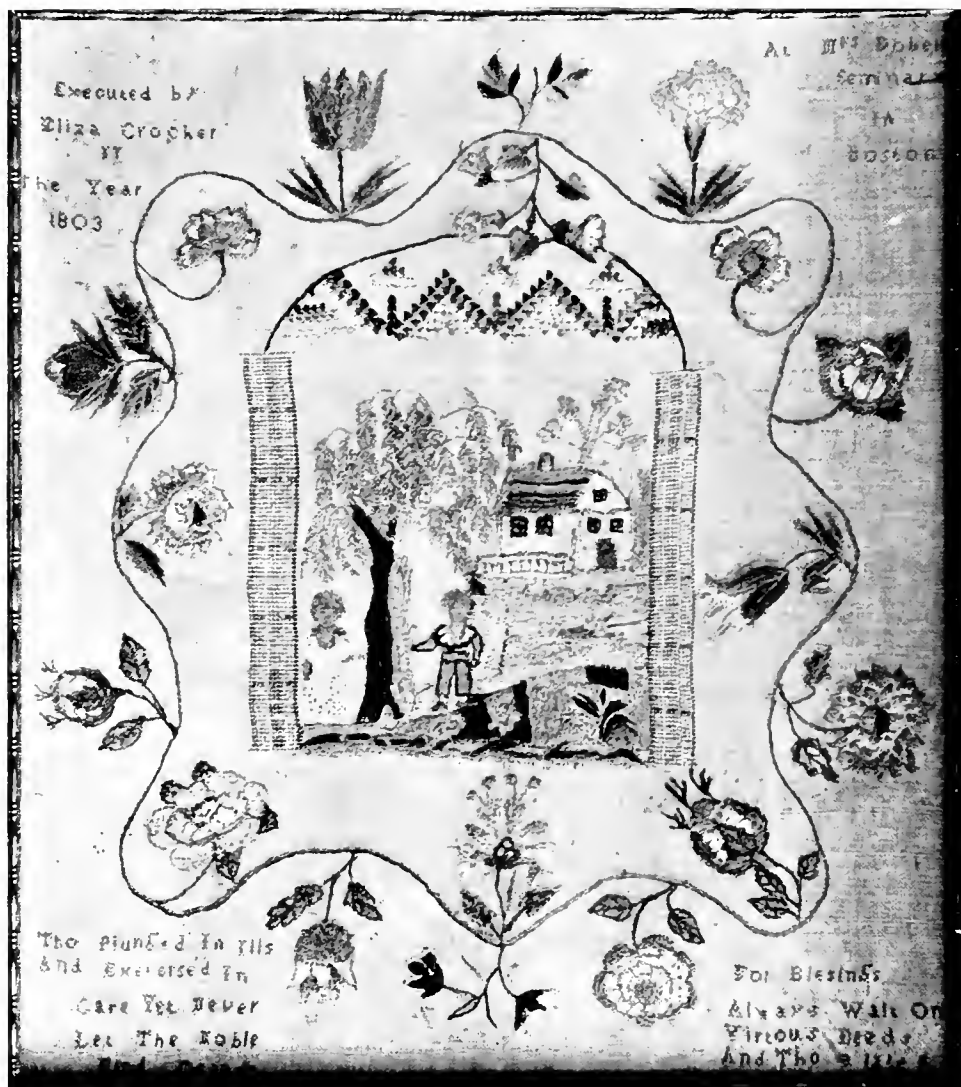 Executed by
Eliza Crocker
The Year
1803
At Mrs Dobel
Seminar
IN
Boston
Tho Plunged In Ills
And Exersised In
Care Yet Never
Let The Noble
For Blesings
Always Wait On
Virtous Deeds
And Tho a late